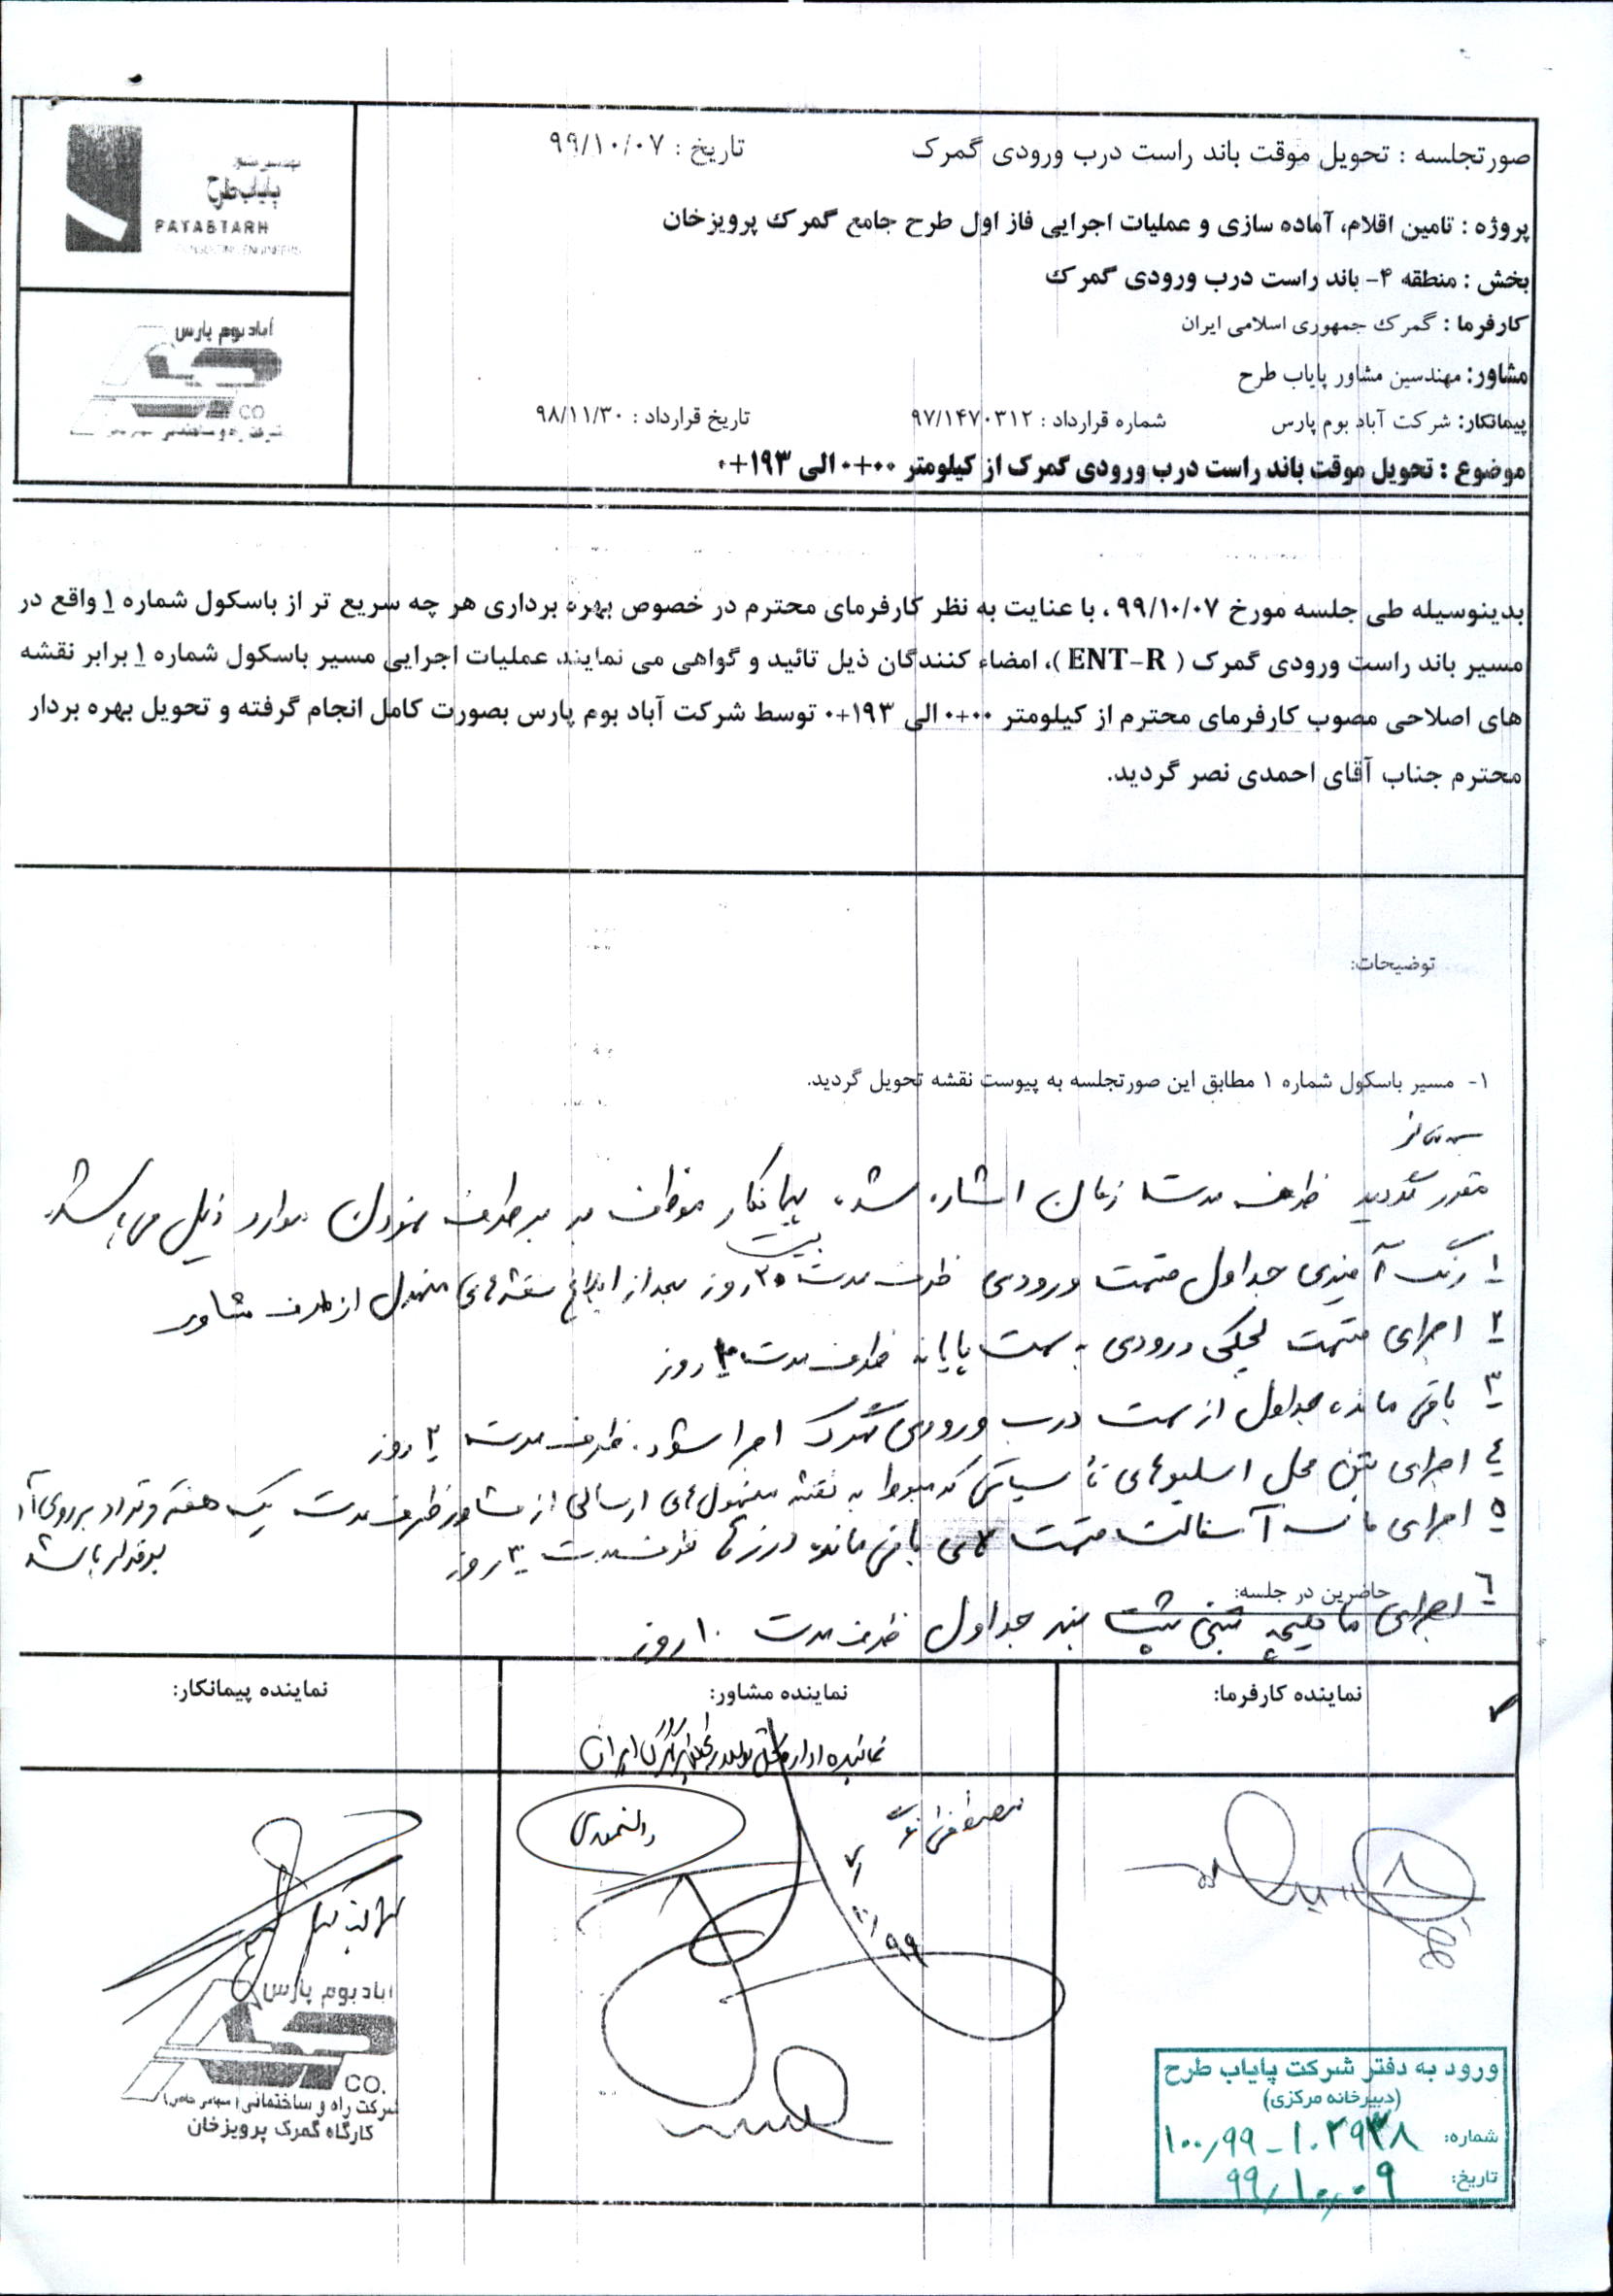 مهندسین مشاور
پایاب طرح
PAYABTARH
CONSULTING ENGINEERS
آباد بوم پارس
CO
صورتجلسه : تحویل موقت باند راست درب ورودی گمرک تاریخ : ۹۹/۱۰/۰۷
پروژه : تامین اقلام، آماده سازی و عملیات اجرایی فاز اول طرح جامع گمرک پرویزخان
بخش : منطقه ۴- باند راست درب ورودی گمرک
کارفرما : گمرک جمهوری اسلامی ایران
مشاور: مهندسین مشاور پایاب طرح
پیمانکار: شرکت آباد بوم پارس شماره قرارداد : ۹۷/۱۴۷۰۳۱۲ تاریخ قرارداد : ۹۸/۱۱/۳۰
موضوع : تحویل موقت باند راست درب ورودی گمرک از کیلومتر ۰+۰۰ الی ۰+۱۹۳
بدینوسیله طی جلسه مورخ ۹۹/۱۰/۰۷ ، با عنایت به نظر کارفرمای محترم در خصوص بهره برداری هر چه سریع تر از باسکول شماره ۱ واقع در
مسیر باند راست ورودی گمرک ( ENT-R )، امضاء کنندگان ذیل تائید و گواهی می نمایند عملیات اجرایی مسیر باسکول شماره ۱ برابر نقشه
های اصلاحی مصوب کارفرمای محترم از کیلومتر ۰+۰۰ الی ۰+۱۹۳ توسط شرکت آباد بوم پارس بصورت کامل انجام گرفته و تحویل بهره بردار
محترم جناب آقای احمدی نصر گردید.
توضیحات:
۱- مسیر باسکول شماره ۱ مطابق این صورتجلسه به پیوست نقشه تحویل گردید.
مقرر گردید ظرف مدت زمان اشاره شده، پیمانکار موظف به برطرف نمودن موارد ذیل می باشد.
۱ رنگ آمیزی جداول قسمت ورودی ظرف مدت ۲۰ روز بعد از ابلاغ نقشه های از طرف مشاور
بیست
۲ اجرای قسمت لچکی ورودی به سمت پایانه ظرف مدت روز
۳ باقی مانده جداول از سمت درب ورودی گمرک اجرا شود. ظرف مدت ۲ روز
٤ اجرای بتن محل اسلیوهای تأسیساتی که مربوط به نقشه های ارسالی از مشاور ظرف مدت یک هفته و تردد بر روی آن
برقرار باشد
۵ اجرای آسفالت قسمت های باقی مانده درزها ظرف مدت ۳ روز
٦ اجرای ماهیچه بتنی پشت بند جداول ظرف مدت ۱۰ روز
حاضرین در جلسه:
نماینده کارفرما: نماینده مشاور: نماینده پیمانکار:
نماینده اداره گمرک ایران
مصطفی
۹۹/۱۰/۷
آباد بوم پارس
CO.
شرکت راه و ساختمانی (سهامی خاص)
کارگاه گمرک پرویزخان
ورود به دفتر شرکت پایاب طرح
(دبیرخانه مرکزی)
شماره: ۱۰۰٫۹۹-۱۰۲۹۳۸
تاریخ: ۹۹٫۱۰٫۰۹